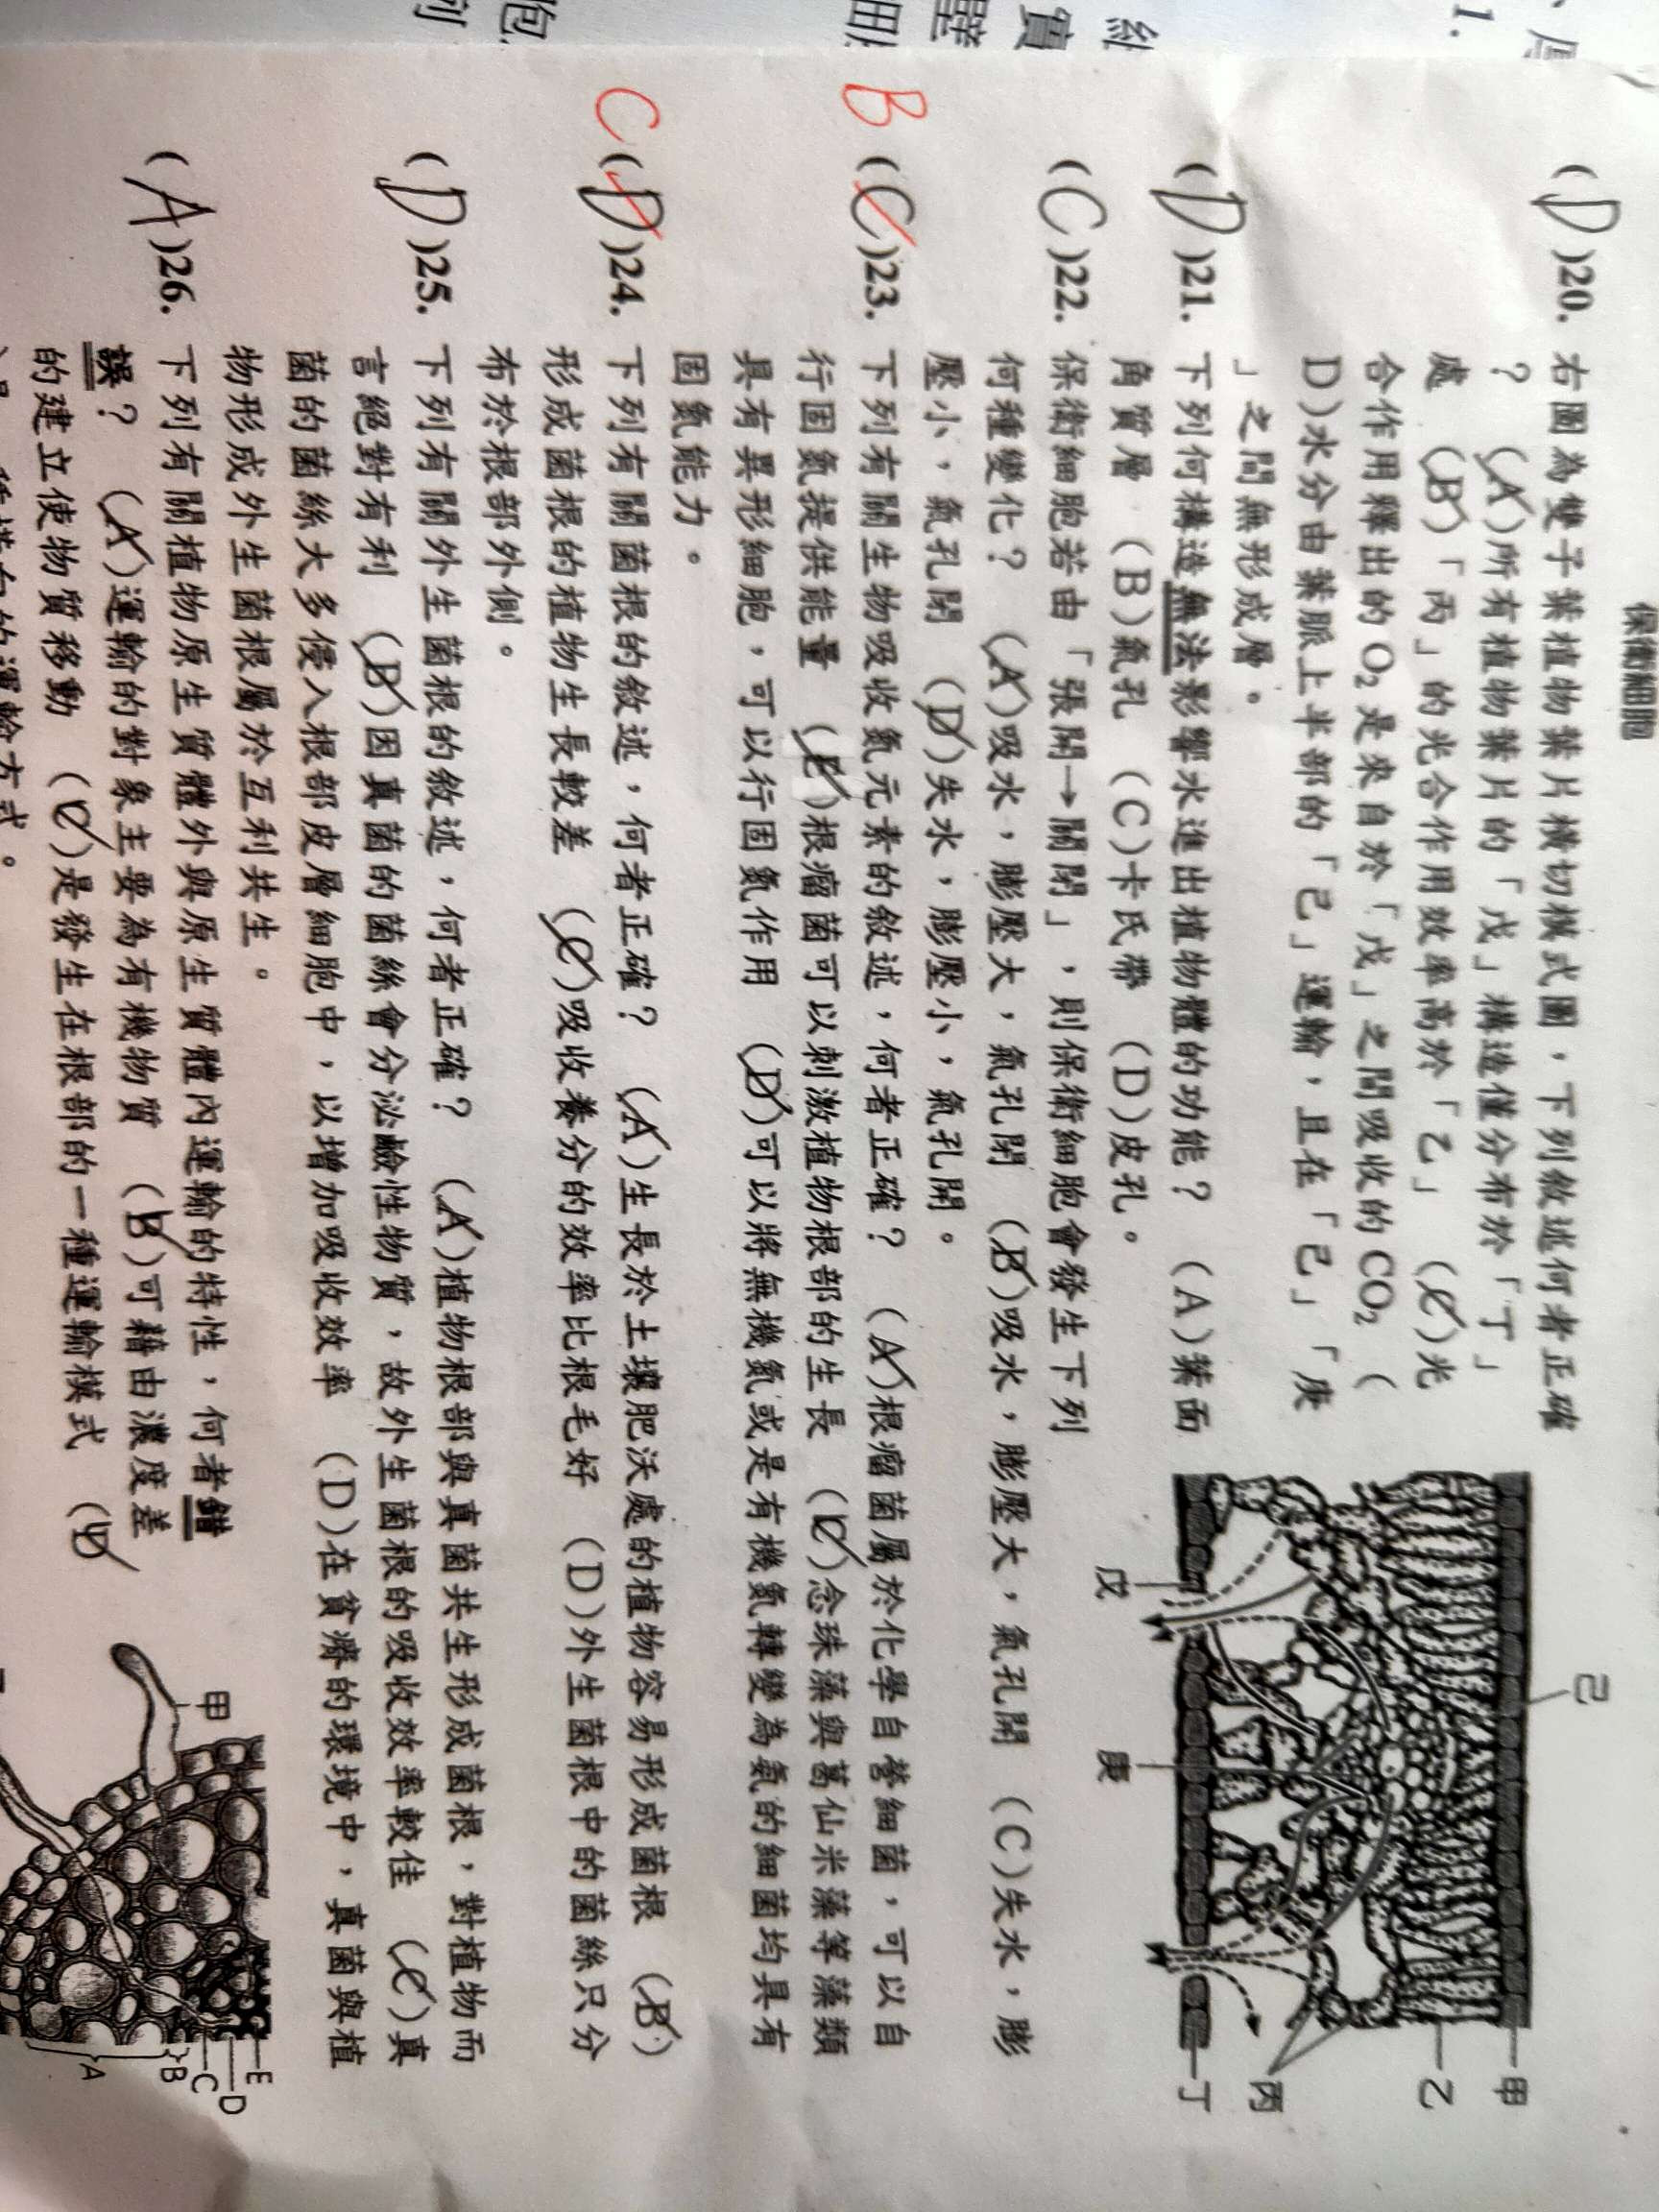 保衛細胞
(D)20. 右圖為雙子葉植物葉片橫切模式圖，下列敘述何者正確
？ (A)所有植物葉片的「戊」構造僅分布於「丁」
處 (B)「丙」的光合作用效率高於「乙」 (C)光
合作用釋出的O₂是來自於「戊」之間吸收的CO₂ (
D)水分由葉脈上半部的「己」運輸，且在「己」「庚
」之間無形成層。
(D)21. 下列何構造無法影響水進出植物體的功能？ (A)葉面
角質層 (B)氣孔 (C)卡氏帶 (D)皮孔。
(C)22. 保衛細胞若由「張開→關閉」，則保衛細胞會發生下列
何種變化？ (A)吸水，膨壓大，氣孔閉 (B)吸水，膨壓大，氣孔開 (C)失水，膨
壓小，氣孔閉 (D)失水，膨壓小，氣孔開。
B (C)23. 下列有關生物吸收氮元素的敘述，何者正確？ (A)根瘤菌屬於化學自營細菌，可以自
行固氮提供能量 (B)根瘤菌可以刺激植物根部的生長 (C)念珠藻與葛仙米藻等藻類
具有異形細胞，可以行固氮作用 (D)可以將無機氮或是有機氮轉變為氨的細菌均具有
固氮能力。
C (D)24. 下列有關菌根的敘述，何者正確？ (A)生長於土壤肥沃處的植物容易形成菌根 (B)
形成菌根的植物生長較差 (C)吸收養分的效率比根毛好 (D)外生菌根中的菌絲只分
布於根部外側。
(D)25. 下列有關外生菌根的敘述，何者正確？ (A)植物根部與真菌共生形成菌根，對植物而
言絕對有利 (B)因真菌的菌絲會分泌鹼性物質，故外生菌根的吸收效率較佳 (C)真
菌的菌絲大多侵入根部皮層細胞中，以增加吸收效率 (D)在貧瘠的環境中，真菌與植
物形成外生菌根屬於互利共生。
(A)26. 下列有關植物原生質體外與原生質體內運輸的特性，何者錯
誤？ (A)運輸的對象主要為有機物質 (B)可藉由濃度差
的建立使物質移動 (C)是發生在根部的一種運輸模式 (D
己
甲
乙
丙
丁
戊
庚
甲
E
D
C
B
A